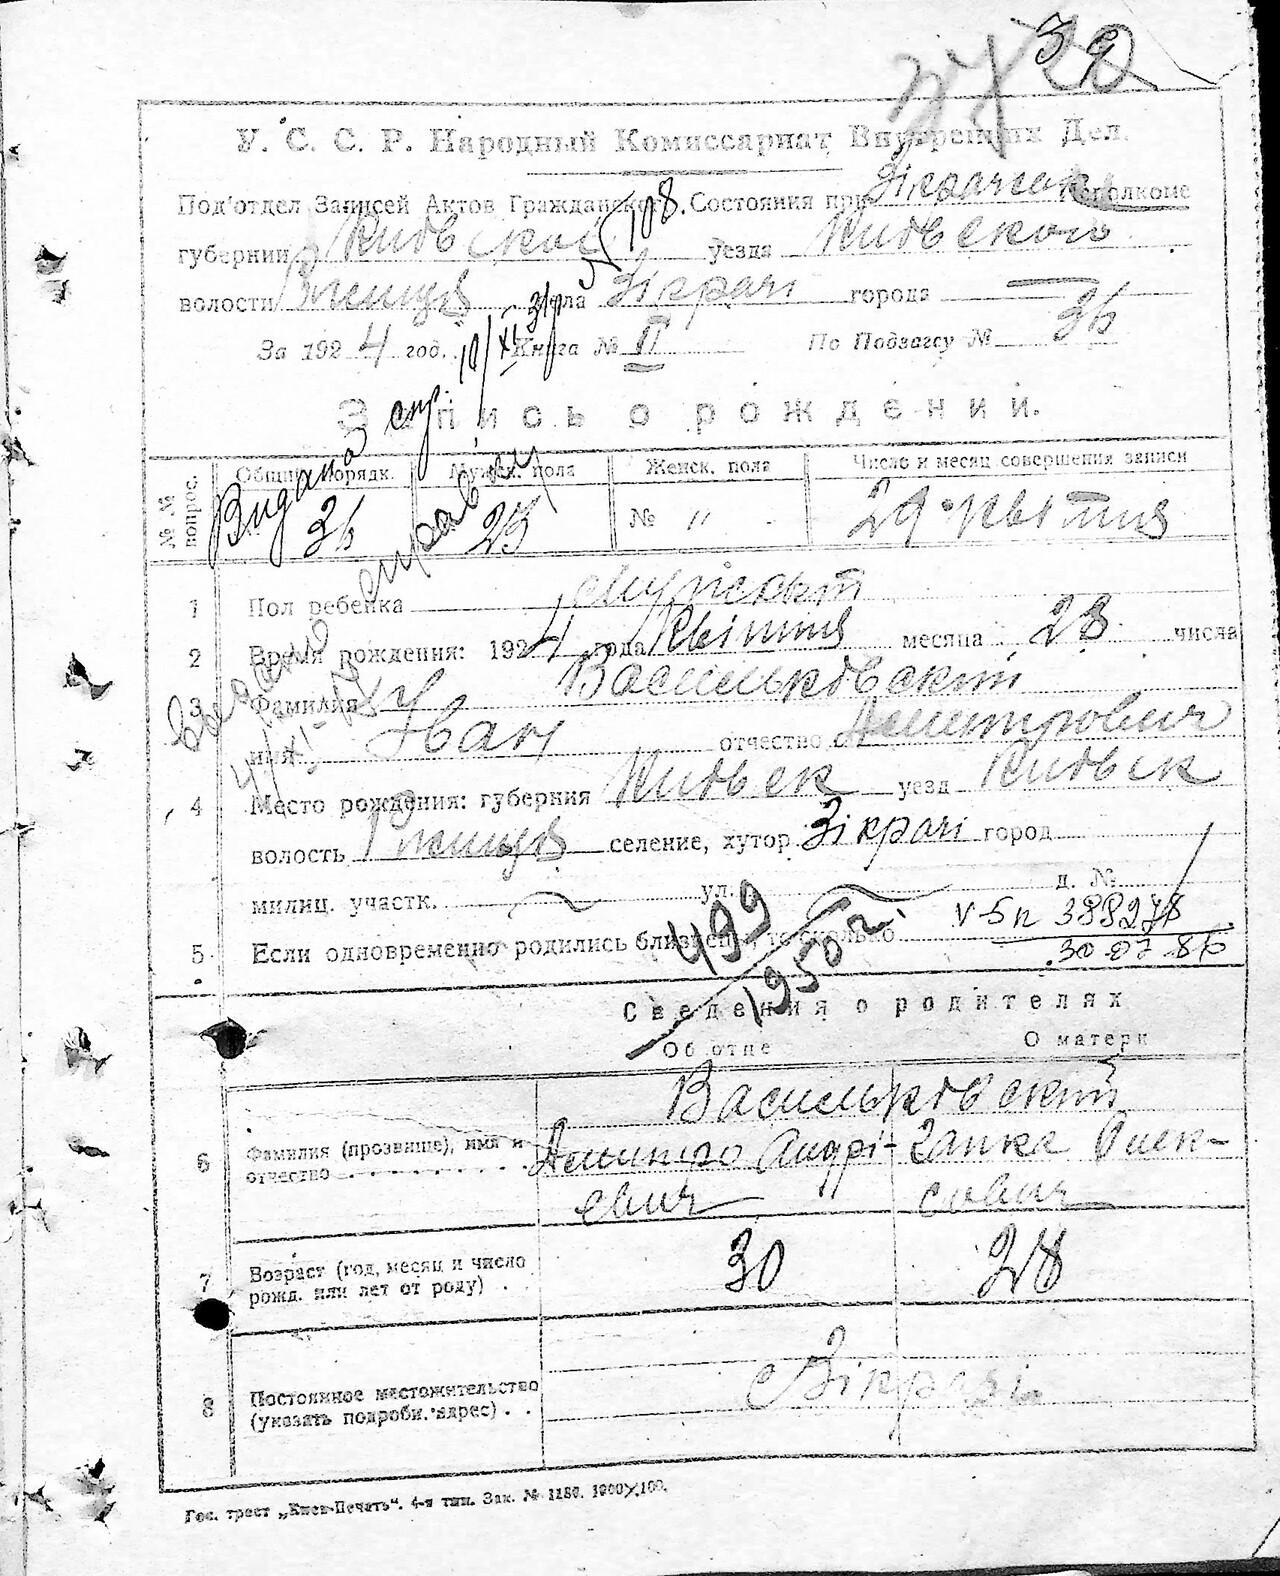 39
У. С. С. Р. Народный Комиссариат Внутренних Дел.
Под'отдел Записей Актов Гражданского Состояния при исполкоме
губернии Київської уезда Київського
волости Ржищів села Зікрачі города —
За 1924 год. Книга № II По Подзагсу № 36
Запись о рождении.
№ № вопрос.
Общий порядк. Мужск. пола Женск. пола Число и месяц совершения записи
36 23 № " 29 квітня
1 Пол ребенка
2 Время рождения: 1924 года Квітня месяца 28 числа
3 Фамилия Васильковский
имя Иван отчество Дмитрович
4 Место рождения: губерния Київськ уезд Київськ
волость Ржищів селение, хутор Зікрачі город
милиц. участк. ул. д. №
V-БП
5 Если одновременно родились близнецы, то сколько
30 07 86
499
1950 г.
Сведения о родителях
Об отце О матери
Васильковский
6 Фамилия (прозвище), имя и отчество
Дмитро Андрієвич
Ганка
7 Возраст (год, месяц и число рожд. или лет от роду) . . 30 28
8 Постоянное местожительство (указать подробн. адрес) . . с Зікрачі
Видано
справку
Гос. трест „Киев-Печать". 4-я тип. Зак. № 1180.